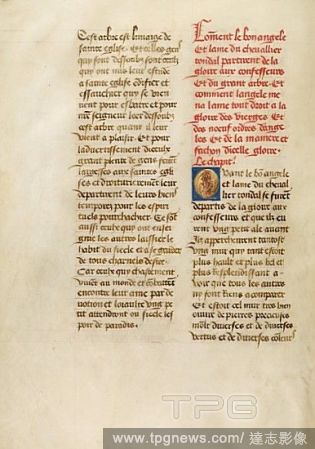 Cest arbre est lymaige de
saincte eglise. Et celles gens
qui sont dessoubz sont ceulx
qui ont mis leur estude
a saincte eglise ediffier et
essauchier
nient pour esbatre et pour
seigneur loer dessoubz
cest arbre quant il leur
vient a plaisir. Et pour
ladvertissement dieulx
grant plente de gens furent
larges aux sainctes egli
ses et droiturie
departement de leurs biens
temporelz pour les espiri
tuelz pourchachier. Et sont
aussi ceulx qui ont ensei
gnie les autres laissier le
habit du siecle et a se garder
de tous charnelz desirs.
Car ceulx qui chastement
vivent au monde et combattent
encontre leur ame par de
votion et loiaulte ung pe
tit attendront ou siecle les
joies de paradis.
Comment le bon angele
Et lame du chevallier
tondal partirent de la
gloire aux confesseurs
Et du grant arbre. Et
comment langele me
na lame tout droit a la
gloire des vierges Et
des noeuf ordres dange
les Et de la maniere et
fachon dicelle gloire.
Le chapitre
Quant le bon angele
et lame du cheval
lier tondal se furent
departis de la gloire aux
confesseurs et que ilz eu
rent ung petit ale avant
ilz apperchurent tantost
ung mur qui tant estoit
plus hault et plus bel et
plus resplendissant a
veoir que tous les autres
ne font riens a comparer
Et estoit cel mur tres bien
ouvre de pierres precieuses
moult diverses et de diverses
vertus et de diverses couleurs
TPG
www.tpgnews.com/ 達志影像